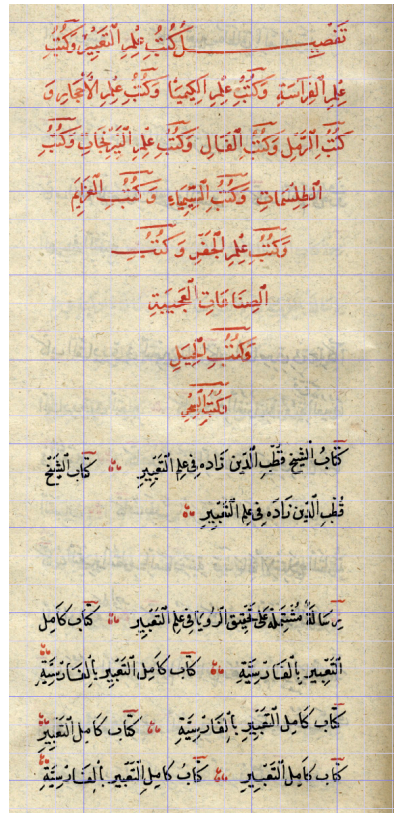 تَفْصِيلُ كُتُبِ عِلْمِ التَّعْبِيرِ وَكُتُبِ
عِلْمِ الْفِرَاسَةِ وَكُتُبِ عِلْمِ الْكِيمْيَا وَكُتُبِ عِلْمِ الْأَحْجَارِ وَ
كُتُبِ الرَّمْلِ وَكُتُبِ الْفَالِ وَكُتُبِ عِلْمِ النَّيْرَنْجَاتِ وَكُتُبِ
الطِّلَسْمَاتِ وَكُتُبِ السِّيمْيَاءِ وَكُتُبِ الْعَزَايِمِ
وَكُتُبِ عِلْمِ الْجَفْرِ وَكُتُبِ
الصِّنَاعَاتِ الْعَجِيبَةِ
وَكُتُبِ الْحِيَلِ
كِتَابُ الشَّيْخِ قُطْبِ الدِّينْ زَادَه فِي عِلْمِ التَّعْبِيرِ كِتَابُ الشَّيْخِ
قُطْبِ الدِّينْ زَادَه فِي عِلْمِ التَّعْبِيرِ
رِسَالَةٌ مُشْتَمِلَةٌ عَلَى تَحْقِيقِ الرُّؤْيَا فِي عِلْمِ التَّعْبِيرِ كِتَابُ كَامِلِ
التَّعْبِيرِ بِالْفَارْسِيَّةِ كِتَابُ كَامِلِ التَّعْبِيرِ بِالْفَارْسِيَّةِ
كِتَابُ كَامِلِ التَّعْبِيرِ بِالْفَارْسِيَّةِ كِتَابُ كَامِلِ التَّعْبِيرِ
كِتَابُ كَامِلِ التَّعْبِيرِ كِتَابُ كَامِلِ التَّعْبِيرِ بِالْفَارْسِيَّةِ